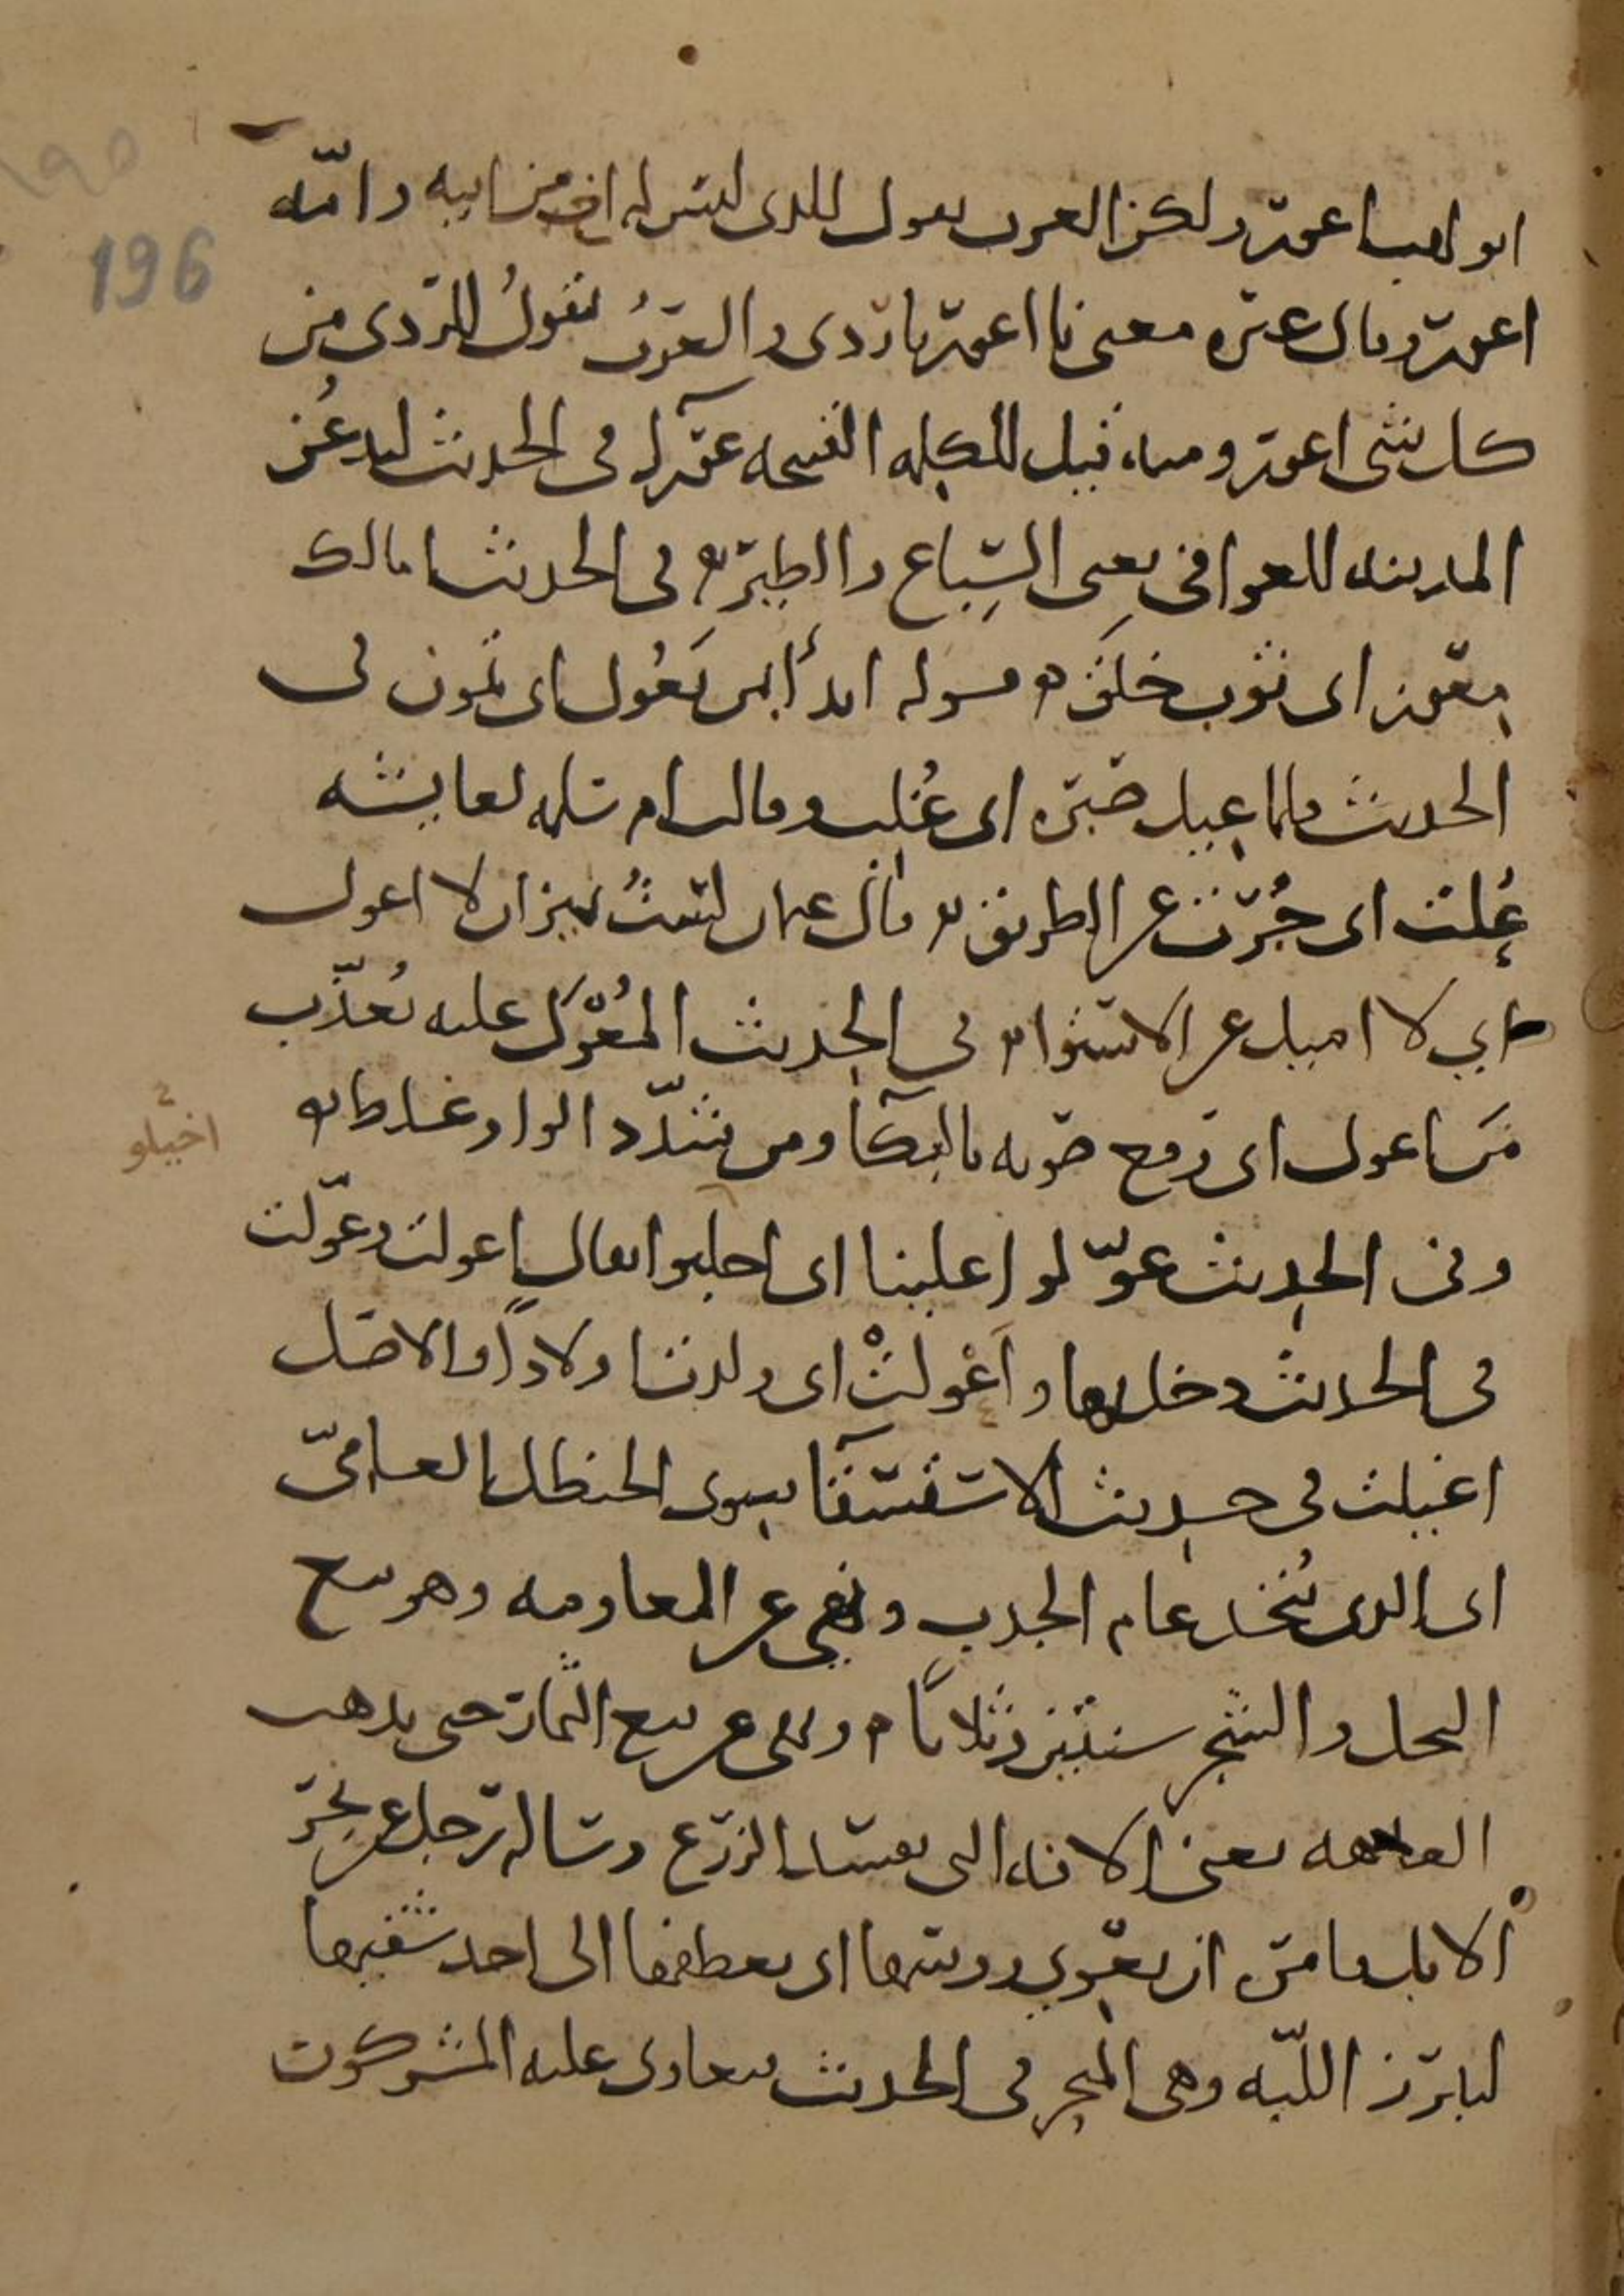 ابو لهب اعور ولكن العرب تقول للذى ليس له اخ من ابيه وامّه
اعور وقال غيره معنى يا اعور يا ردى والعرب تقولُ للردى من
كل شى اعور ومنه قيل للكلمه القبيحه عورآ فى الحديث ليدعُن
المدينه للعوافى يعنى السِّباع والطير ه فى الحديث امالك
مِعْوَز اى ثوب خلَق ه قوله ابدأ بمن تَعُول اى تمون فى
الحديث فلما عِيل صبره اى غُلب وقالت ام سلمه لعايشه
عُلْت اى جُرْت عن الطريق ه قال عثمان لستُ بميزان لا اعول
اي لا اميل عن الاستوا ه فى الحديث المُعْوَل عليه يُعذّب
مَن اعول اى رفع صوته بالبكآ ومن شدّد الواو غلط ه
وفى الحديث عوّلوا علينا اى اجلبوا يقال اعولت وعوّلت
فى الحديث دخل بها واَعْولتْ اى ولدت اولاداً والاصل
اعيلت فى حديث الاستسقآ سوى الحنظل العامىّ
اى الذى يُتخذ عام الجدب ونهى عن المعاومه وهو بيع
النخل والشجر سنتين وثلاثاً ه ونهى عن بيع الثمار حتى يذهب
العاهه يعنى الافه التى تفسد الزرع وساله رجل عن نحر
الابل فامره ان يعوي رووسها اى يعطفها الى احد شقيها
ليبرز اللبّه وهى المنحر فى الحديث فتعاوى عليه المشركون
اجبلو
196